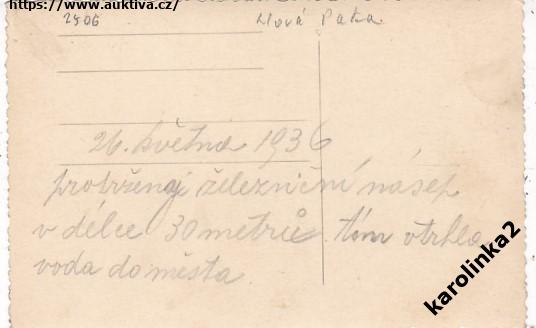 https://www.auktiva.cz/
2506 Nová Paka
26. května 1936
protržený železniční násep
v délce 30 metrů. tím vtrhla
voda do města.
karolinka2